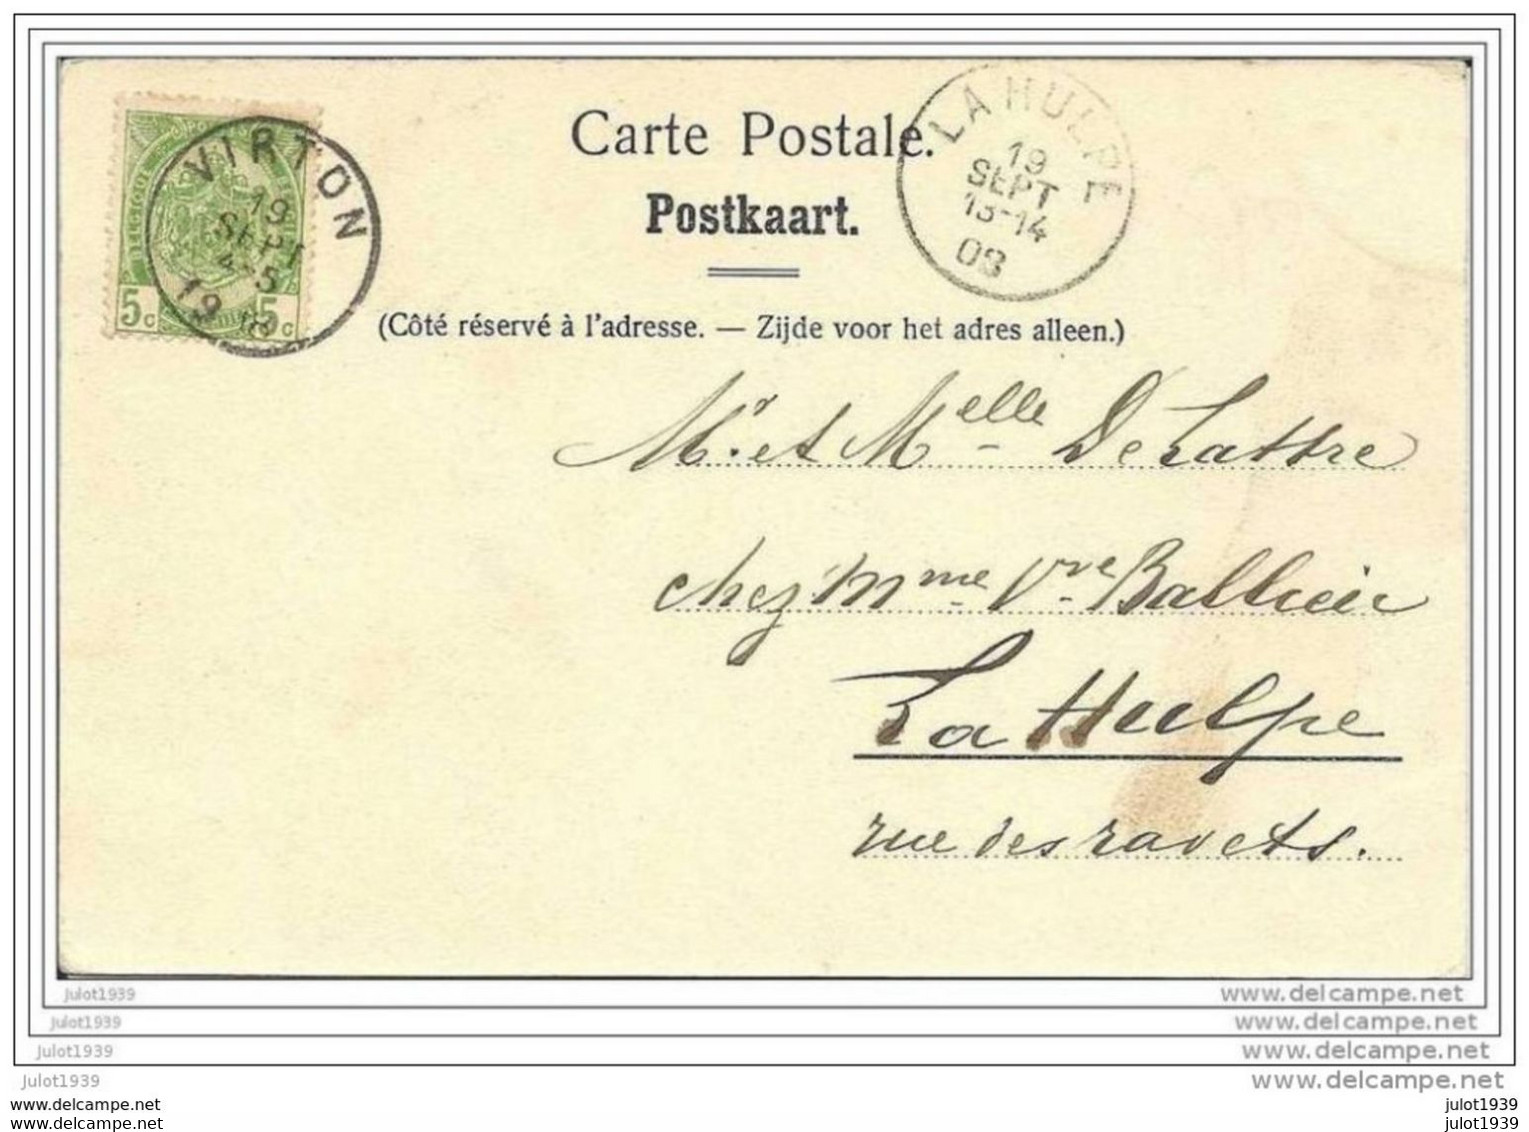 BELGIQUE
5c 5c
VIRTON
19
SEPT
4-5
19
Carte Postale.
Postkaart.
LA HULPE
19
SEPT
13-14
08
(Côté réservé à l'adresse. — Zijde voor het adres alleen.)
Mr. et Melle DeLattre
chez Mme Vve Ballieu
La Hulpe
rue des ravets.
julot1939 www.delcampe.net
julot1939 www.delcampe.net
julot1939 www.delcampe.net
julot1939 www.delcampe.net
www.delcampe.net julot1939
www.delcampe.net julot1939